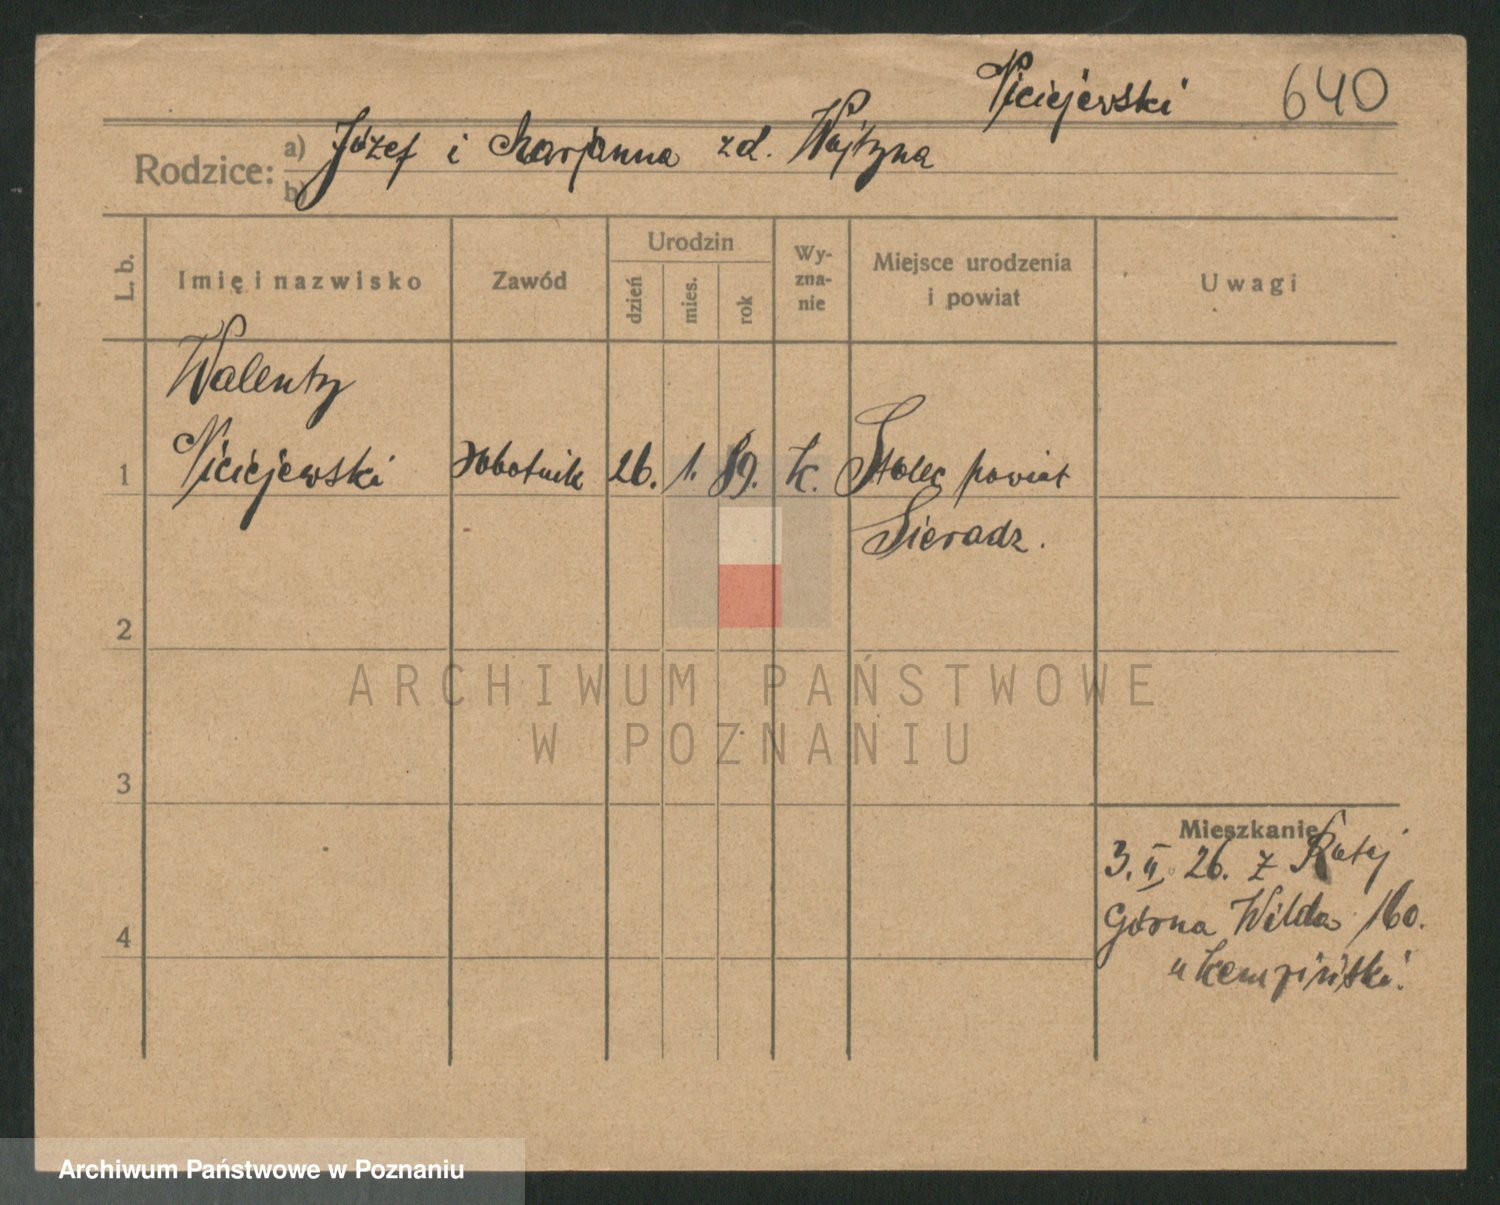 Viciejewski 640
Rodzice: a) Józef i Marjanna zd. Wojtyna
b)
L. b. Imię i nazwisko Zawód Urodzin dzień mies. rok Wy-zna-nie Miejsce urodzenia i powiat Uwagi
Walenty
1 Viciejewski robotnik 26. 1. 89. k. Stolec powiat
Sieradz.
2
ARCHIWUM PAŃSTWOWE
W POZNANIU
3
Mieszkanie
3. II. 26. z Rataj
4 Górna Wilda 160.
u Kempiński.
Archiwum Państwowe w Poznaniu